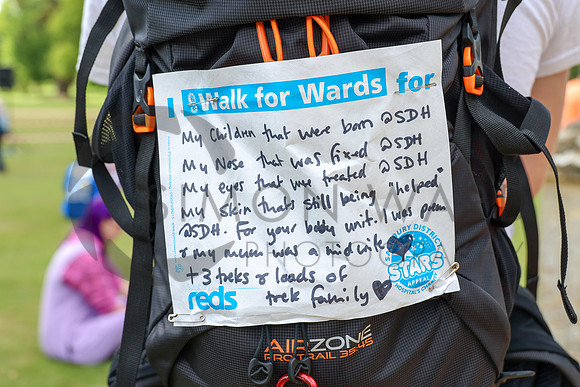 I #Walk for Wards for
My Children that were born @SDH
My Nose that was fixed @SDH
My eyes that we treated @SDH
My skin thats still being "helped"
@SDH. For your baby unit. I was prem
& my mum was a midwife
+ 3 treks & loads of
trek family
reds
SALISBURY DISTRICT
STARS
APPEAL
HOSPITAL'S CHARITY
AIRZONE
PRO TRAIL 35:45
SIMON WARD
PHOTOGRAPHY